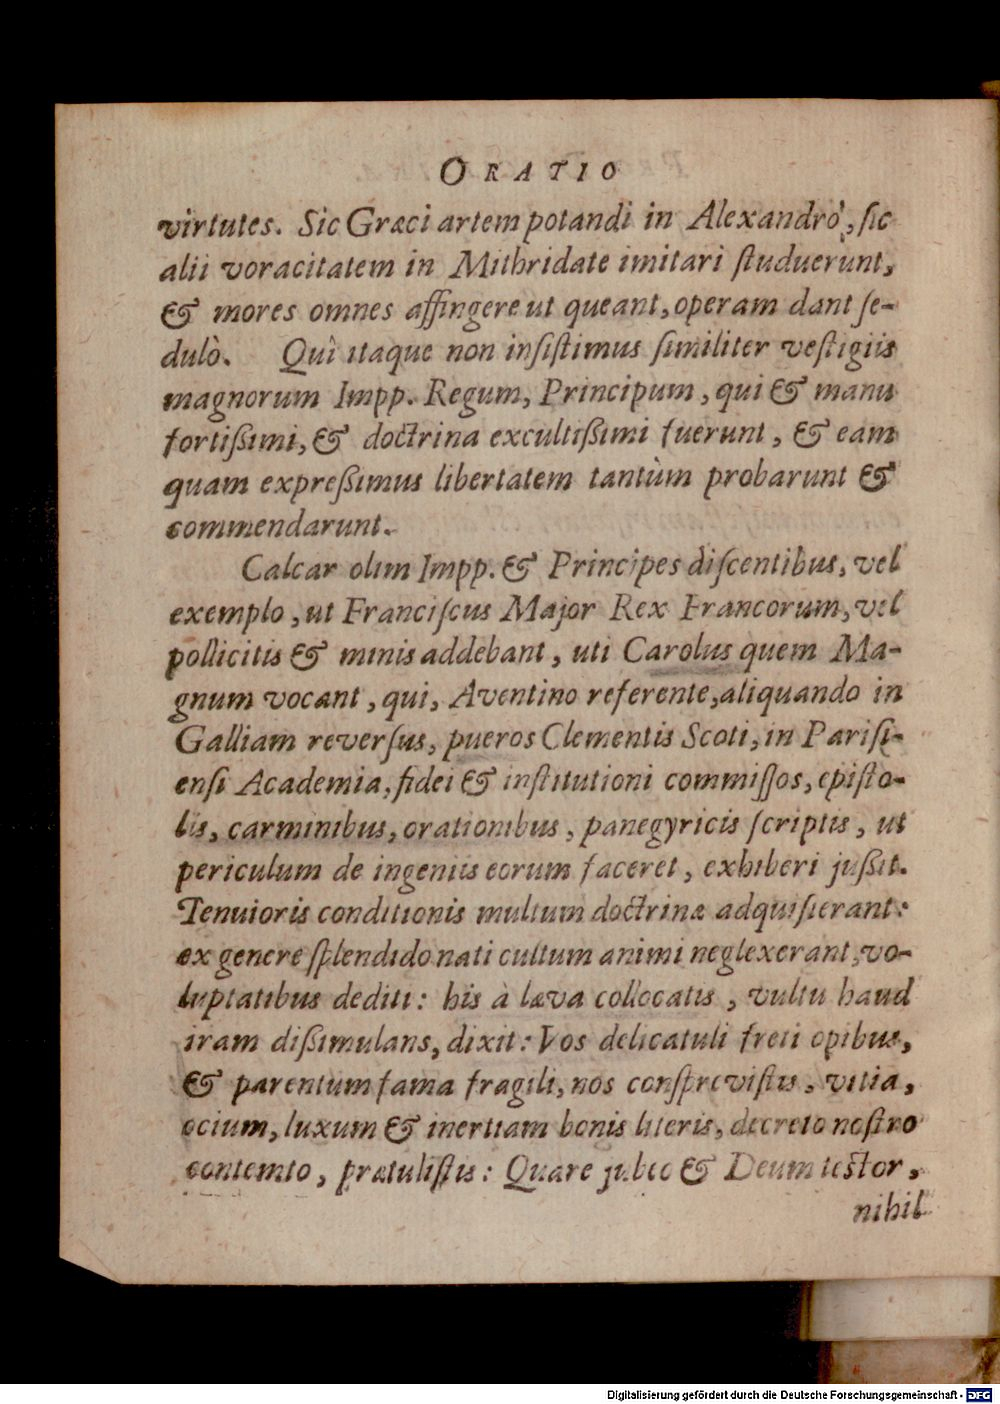 ORATIO
virtutes. Sic Græci artem potandi in Alexandrò, ſic
alii voracitatem in Mithridate imitari ſtuduerunt,
& mores omnes affingere ut queant, operam dant ſe-
dulò. Quî itaque non inſiſtimus ſimiliter veſtigiis
magnorum Impp. Regum, Principum, qui & manu
fortißimi, & doctrina excultißimi fuerunt, & eam
quam expreßimus libertatem tantùm probarunt &
commendarunt.
Calcar olim Impp. & Principes diſcentibus, vel
exemplo, ut Franciſcus Major Rex Francorum, vel
pollicitis & minis addebant, uti Carolus quem Ma-
gnum vocant, qui, Aventino referente, aliquando in
Galliam reverſus, pueros Clementis Scoti, in Pariſi-
enſi Academia, fidei & inſtitutioni commiſſos, epiſto-
lis, carminibus, orationibus, panegyricis ſcriptis, ut
periculum de ingeniis eorum faceret, exhiberi jußit.
Tenuioris conditionis multum doctrinæ adquiſierant:
ex genere ſplendido nati cultum animi neglexerant, vo-
luptatibus dediti: his à læva collocatis, vultu haud
iram dißimulans, dixit: Vos delicatuli freti opibus,
& parentum fama fragili, nos conſpreviſtis, vitia,
ocium, luxum & inertiam bonis literis, decreto noſtro
contemto, prætuliſtis: Quare jubeo & Deum teſtor,
nihil
Digitalisierung gefördert durch die Deutsche Forschungsgemeinschaft - DFG